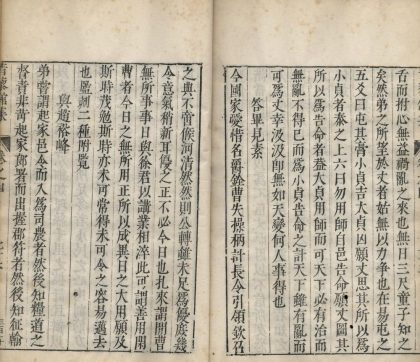 舌而拊心無益禍亂之來也無日三尺童子而
矣然弟之所望於丈者始無以力爭也在易屯之
五爻曰屯其膏小貞吉大貞凶願丈思其所以爲
小貞者泰之上六曰勿用師自邑告命願丈圖其
所以爲告命者蓋大貞用師而可天下必有治而
無亂不得已而爲小貞告命之計天下雖有亂而
可爲丈幸汲汲即無如天變何人事得也
答畢見素
今國家愛惜名爵銓曹失操柄計長令引領欽召
之典不啻俟河清然然則公轉離未足爲優底幾
今意氣稍新耳優之正不必今日也扎來謂開曹
無所事事日與徐君以講業相淬此可謂善用閒
曹者今日之無所用正所以成異日之大用願及
斯時茂勉斯時亦未可常得未可令之容易邁去
也監刻二種附覽
與趙裕峰
弟嘗謂起家邑令而入爲司農者然後知糧道之
督者非苛起家郎署而出握郡符者然後知征輸